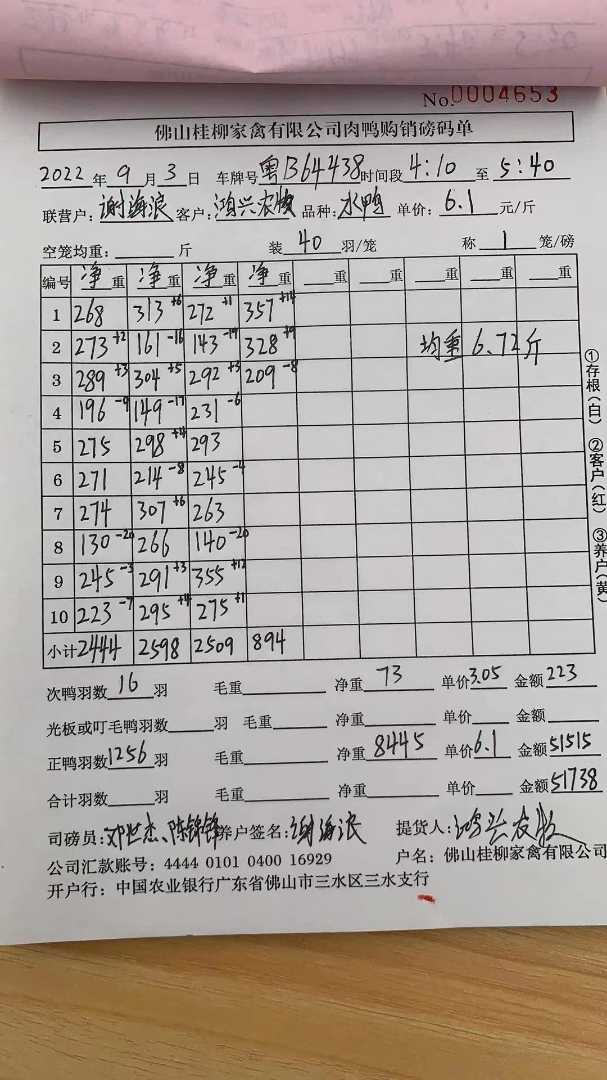 No.0004653
佛山桂柳家禽有限公司肉鸭购销磅码单
2022年9月3日 车牌号粤B64438时间段4:10至5:40
联营户:谢海浪 客户:鸿兴农牧 品种:水鸭 单价:6.1元/斤
空笼均重:____斤 装40羽/笼 称1笼/磅
编号 净重 净重 净重 净重 __重 __重 __重 __重
1 268 313+6 272+1 357+14
2 273+2 161-16 143-19 328+9 均重6.72斤
3 289+3 304+5 292+3 209-8
4 196-9 149-17 231-6
5 275 298+4 293
6 271 214-8 245-4
7 274 307+6 263
8 130-20 266 140-20
9 245-3 291+3 355+12
10 223-7 295+4 275+1
小计 2444 2598 2509 894
①存根(白) ②客户(红) ③养户(黄)
次鸭羽数16羽 毛重____ 净重73 单价3.05 金额223
光板或叮毛鸭羽数____羽 毛重____ 净重____ 单价____ 金额____
正鸭羽数1256羽 毛重____ 净重8445 单价6.1 金额51515
合计羽数____羽 毛重____ 净重____ 单价____ 金额51738
司磅员:邓世杰、陈锦锋 养户签名:谢海浪 提货人:鸿兴农牧
公司汇款账号:4444 0101 0400 16929 户名:佛山桂柳家禽有限公司
开户行:中国农业银行广东省佛山市三水区三水支行